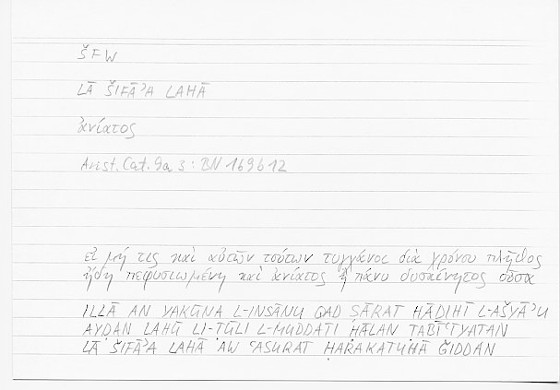 ŠFW
LĀ ŠIFĀʾA LAHĀ
ἀνίατος
Arist. Cat. 9a 3 : BN 169b12
εἰ μή τις καὶ αὐτῶν τούτων τυγχάνοι διὰ χρόνου πλῆθος
ἤδη πεφυσιωμένη καὶ ἀνίατος ἢ πάνυ δυσκίνητος οὖσα
ILLĀ AN YAKŪNA L-INSĀNU QAD ṢĀRAT HĀḎIHĪ L-AŠYĀʾU
AYḌAN LAHŪ LI-ṬŪLI L-MUDDATI ḤĀLAN ṬABĪʿĪYATAN
LĀ ŠIFĀʾA LAHĀ AW ʿASURAT ḤARAKATUHĀ ǦIDDAN